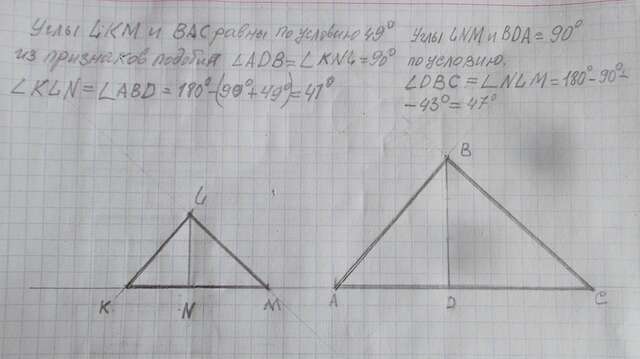 Углы LKM и BAC равны по условию 49°
из признаков подобия ∠ADB=∠KNL=90°
∠KLN=∠ABD=180°-(90°+49°)=41°
Углы LNM и BDA=90°
по условию.
∠DBC=∠NLM=180°-90°-
-43°=47°
L
K
N
M
B
A
D
C